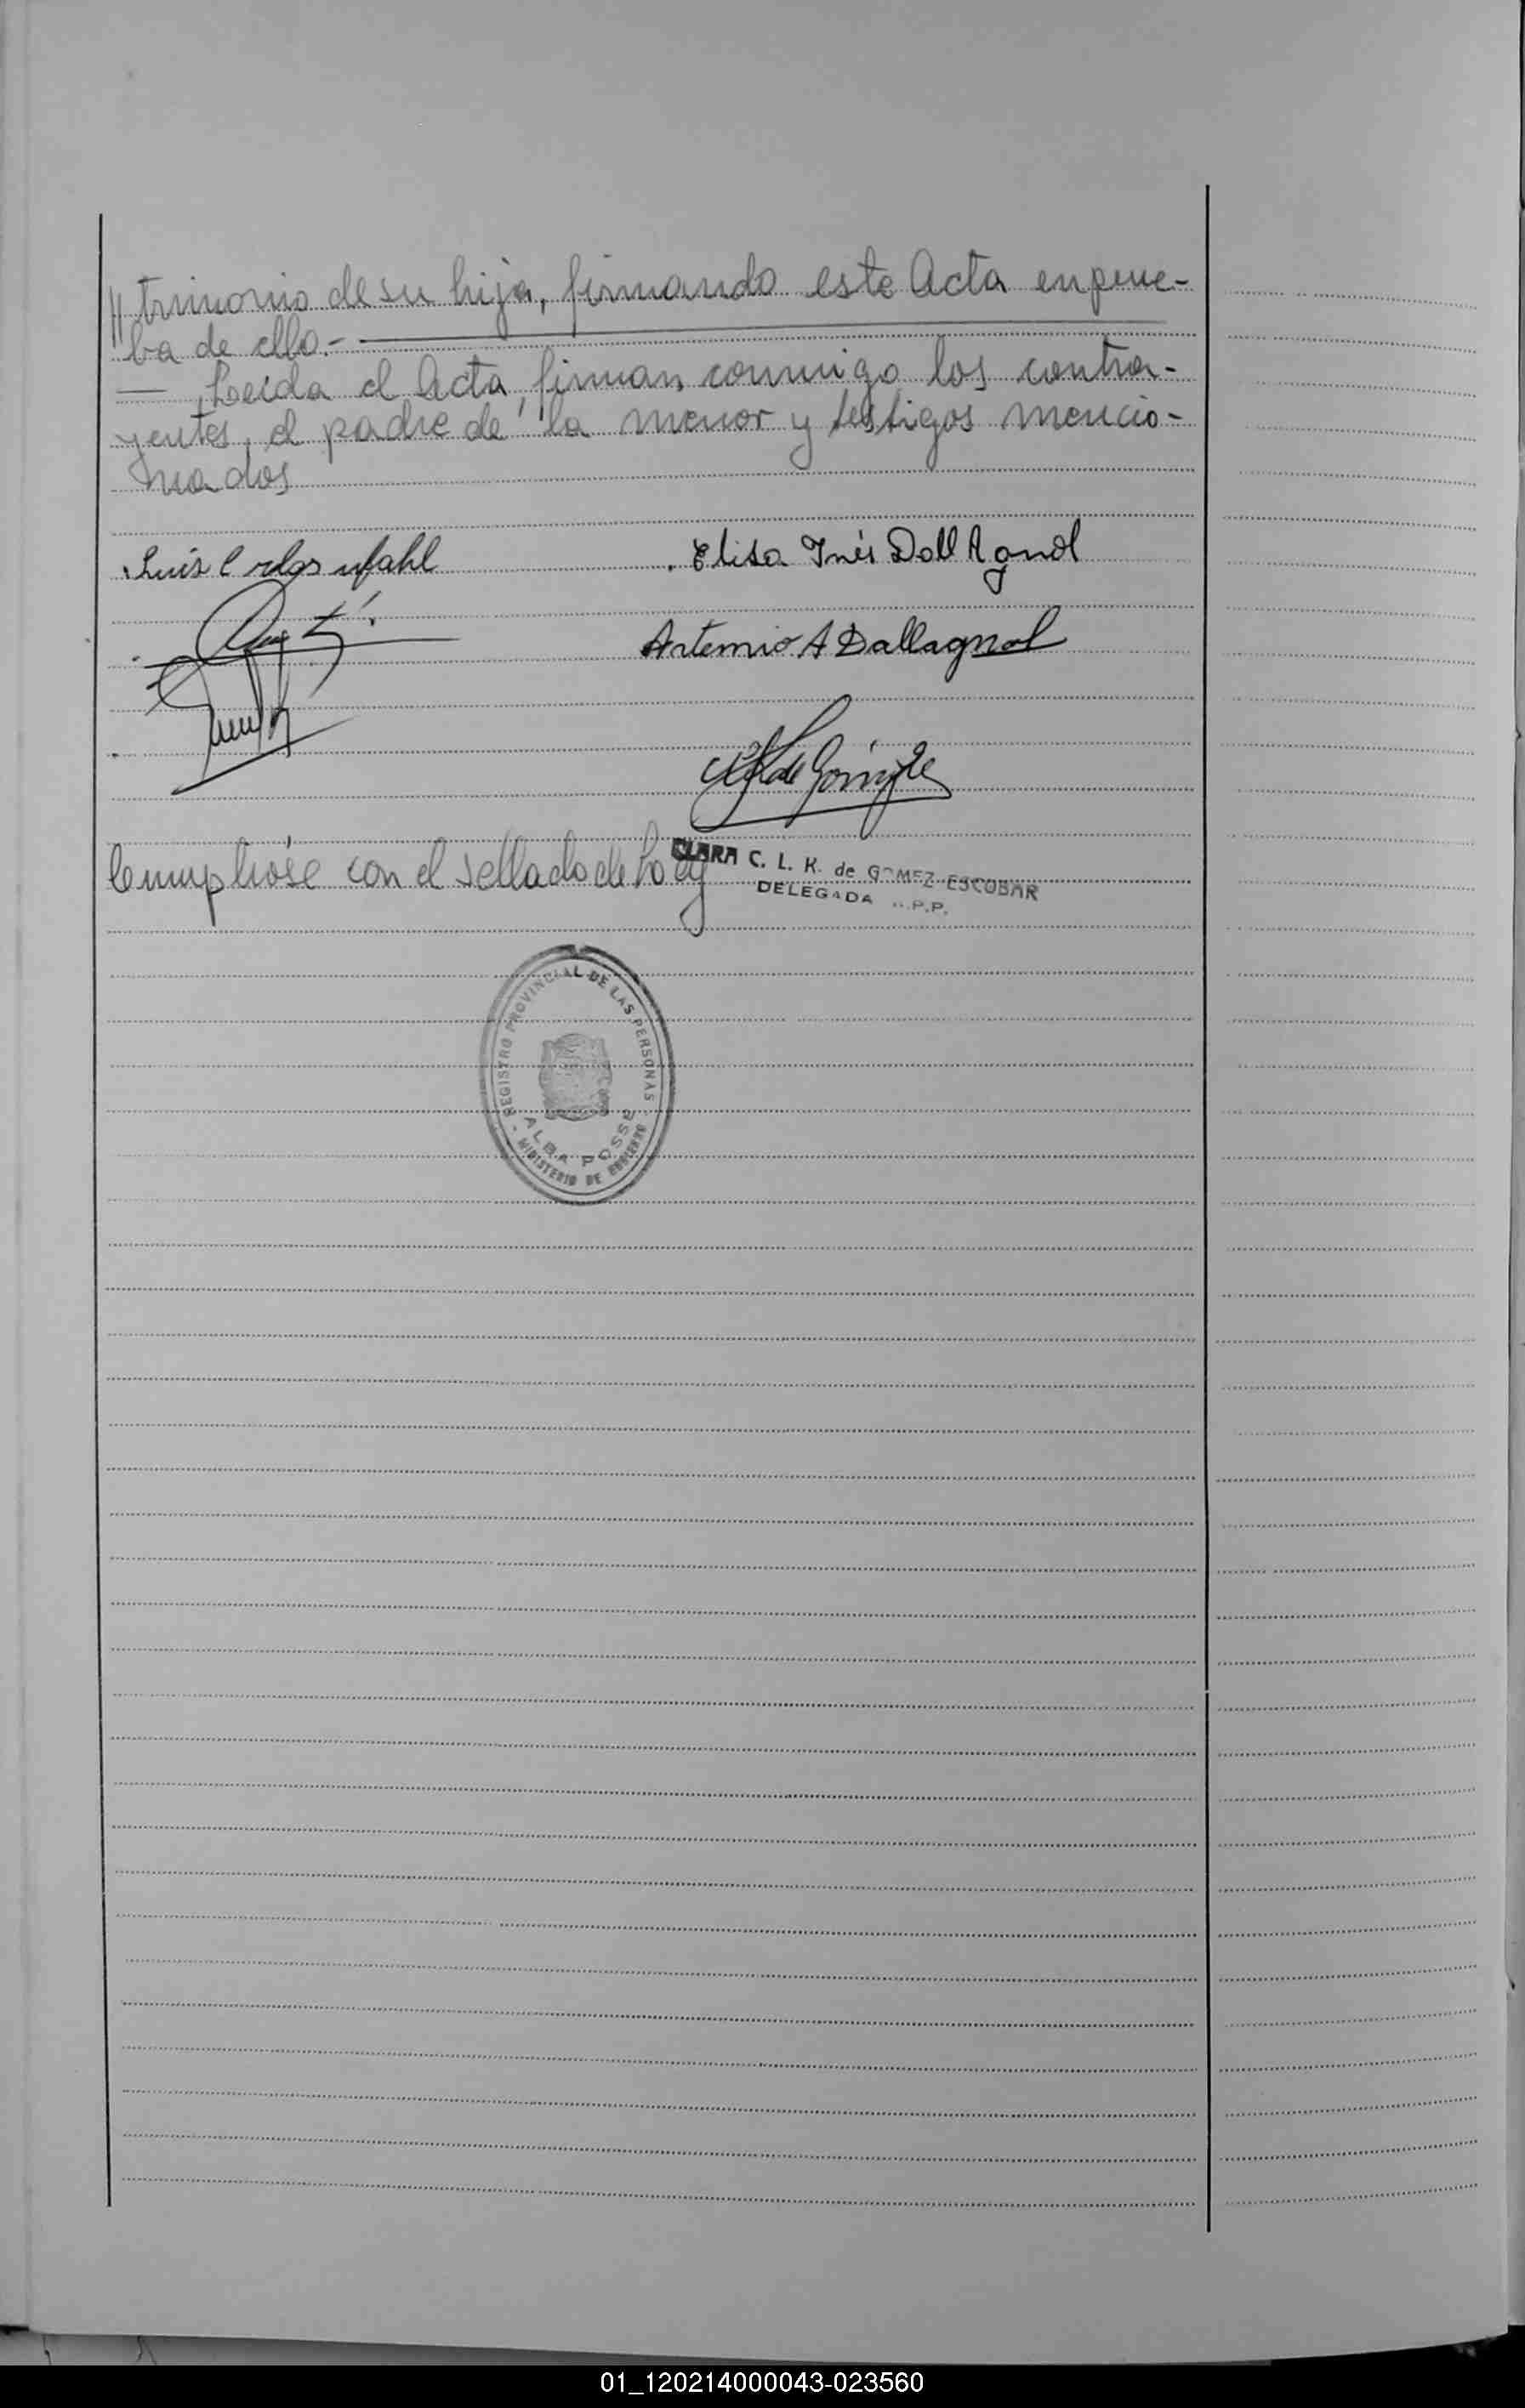 // trimonio de su hija, firmando este Acta en prue-
ba de ello.-
— Leída el Acta, firman conmigo los contra-
yentes, el padre de la menor y testigos mencio-
nados
Luis
Elisa Inés Dall Agnol
Artemio A Dallagnol
Cumplióse con el sellado de Ley
CLARA C. L. K. de GOMEZ ESCOBAR
DELEGADA R.P.P.
REGISTRO PROVINCIAL DE LAS PERSONAS
ALBA POSSE
- MINISTERIO DE GOBIERNO -
01_120214000043-023560